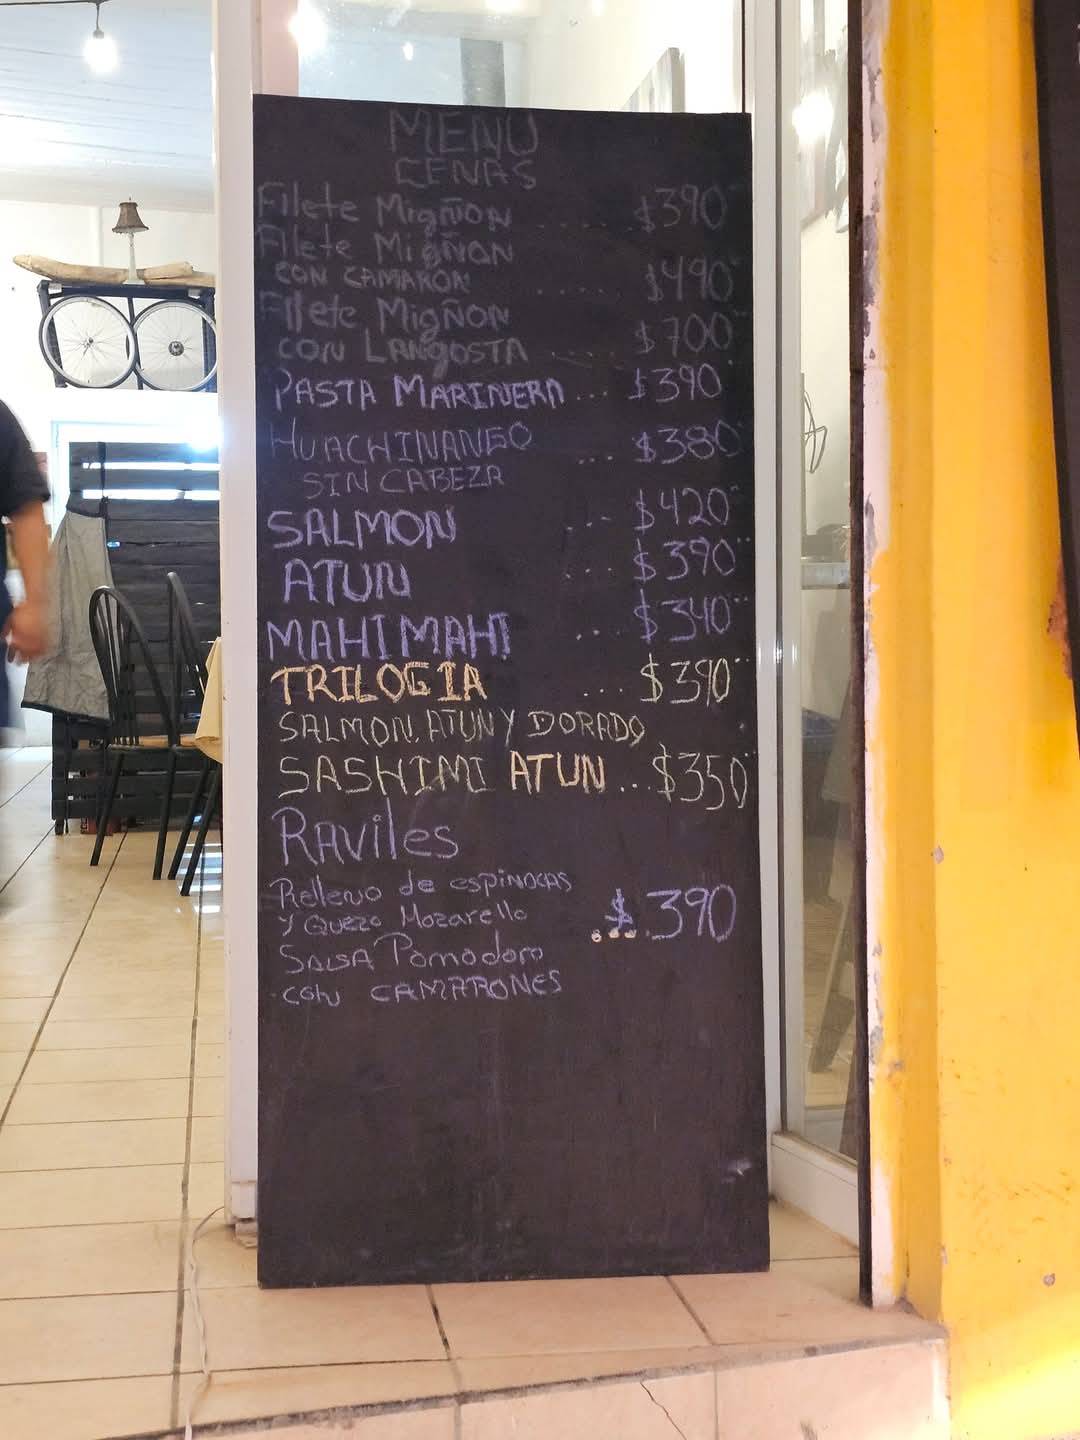 MENU
CENAS
Filete Migñon ...... $390
Filete Migñon
CON CAMARON ...... $490
Filete Migñon
CON LANGOSTA ..... $700
PASTA MARINERA... $390
HUACHINANGO ... $380
SIN CABEZA
SALMON ... $420
ATUN ... $390
MAHI MAHI ... $340
TRILOGIA ... $390
SALMON, ATUN Y DORADO
SASHIMI ATUN ... $350
RAviles
Relleno de espinocas
y Quezo Mozarello ... $390
SALSA Pomodoro
con CAMARONES